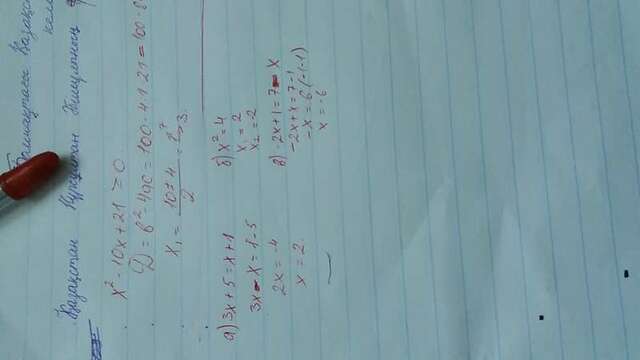 Болашақтасы Қазақс
келе
Қазақстан Нұрсұлтан
x² - 10x + 21 = 0
D = b² - 4ac = 100 - 4·1·21 = 100 - 8
x₁ = 10±4/2 = 7 3
а) 3x + 5 = x + 1
3x - x = 1 - 5
2x = -4
x = 2
б) x² = 4
x₁ = 2
x₂ = -2
в) -2x + 1 = 7 - x
-2x + x = 7 - 1
-x = 6 (-1)
x = -6